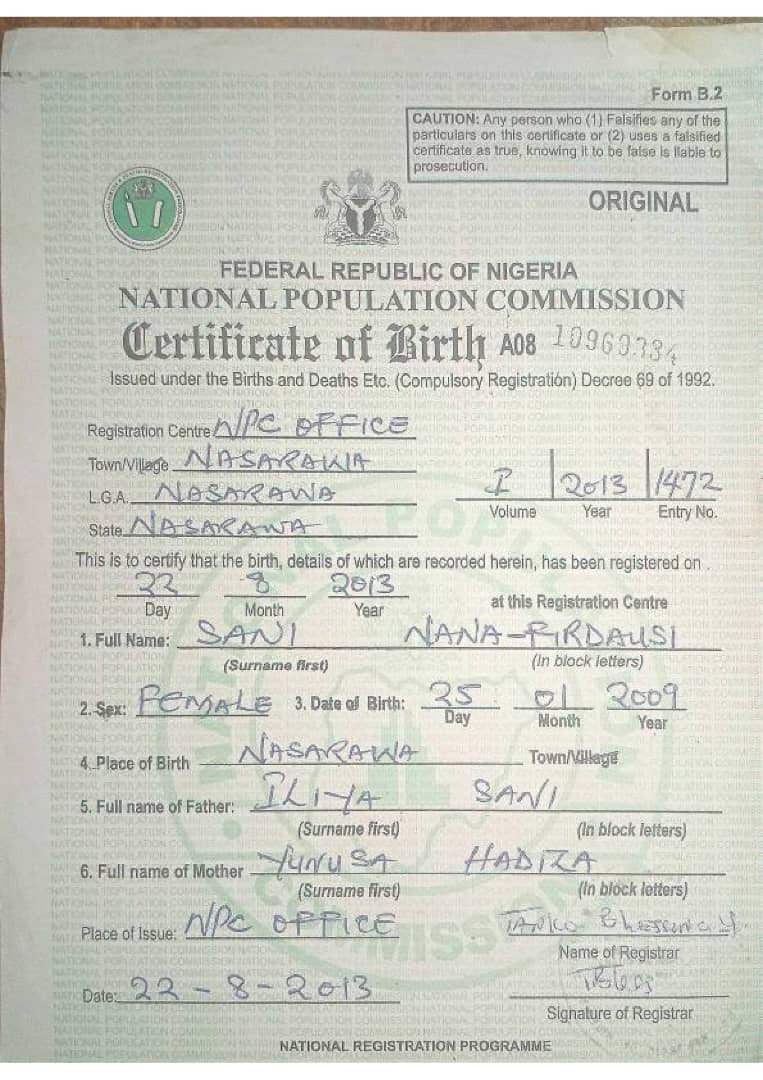 Form B.2
CAUTION: Any person who (1) Falsifies any of the
particulars on this certificate or (2) uses a falsified
certificate as true, knowing it to be false is liable to
prosecution.
ORIGINAL
FEDERAL REPUBLIC OF NIGERIA
NATIONAL POPULATION COMMISSION
Certificate of Birth A08 10969334
Issued under the Births and Deaths Etc. (Compulsory Registration) Decree 69 of 1992.
Registration Centre NPC OFFICE
Town/Village NASARAWA
L.G.A. NASARAWA
I 2013 1472
Volume Year Entry No.
State NASARAWA
This is to certify that the birth, details of which are recorded herein, has been registered on
22 8 2013
Day Month Year
at this Registration Centre
1. Full Name: SANI NANA-FIRDAUSI
(Surname first) (In block letters)
2. Sex: FEMALE 3. Date of Birth: 25 01 2009
Day Month Year
4. Place of Birth NASARAWA Town/Village
5. Full name of Father: ILIYA SANI
(Surname first) (In block letters)
6. Full name of Mother YUNUSA HADIZA
(Surname first) (In block letters)
Place of Issue: NPC OFFICE TANKO Blessing Y.
Name of Registrar
Date: 22-8-2013
Signature of Registrar
NATIONAL REGISTRATION PROGRAMME